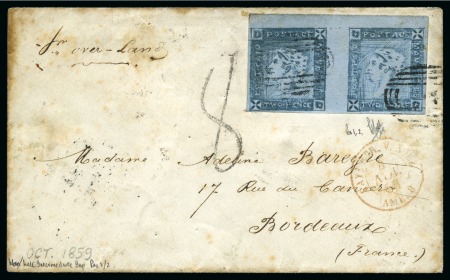 POSTAGE POSTAGE
TWO PENCE TWO PENCE
pr over-Land
8
Madame Adeline Bareyre
17 Rue du Cancera
Bordeaux
(France.)
OCT. 1859